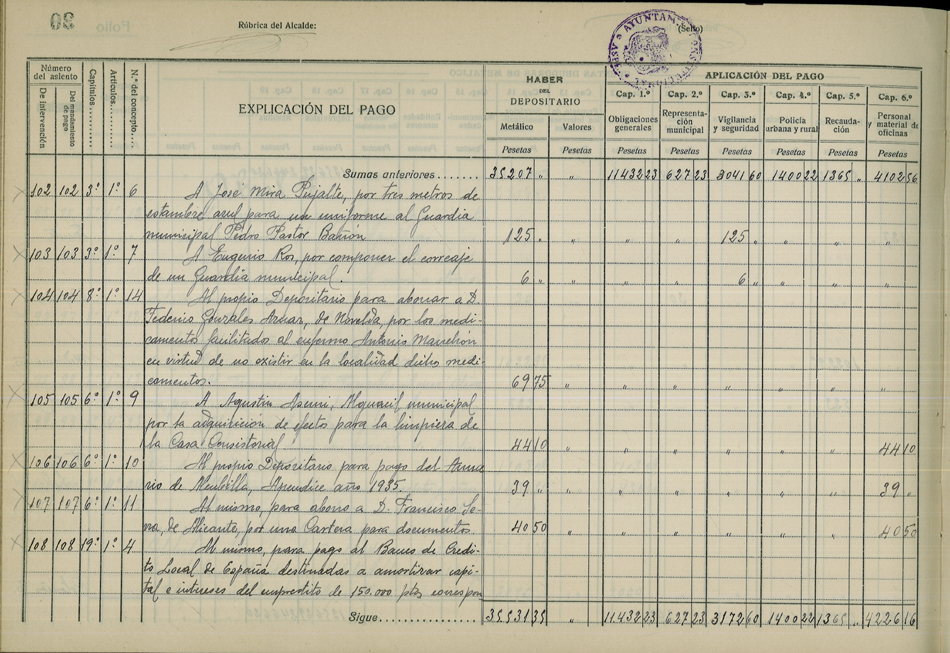 30
Folio
Rúbrica del Alcalde:
AYUNTAM
(Sello)
Número del asiento
De intervención
Del mandamiento de pago
Capítulos
Artículos
N.º del concepto
EXPLICACIÓN DEL PAGO
HABER DEL DEPOSITARIO
Metálico
Valores
APLICACIÓN DEL PAGO
Cap. 1.º Cap. 2.º Cap. 3.º Cap. 4.º Cap. 5.º Cap. 6.º
Obligaciones generales
Representación municipal
Vigilancia y seguridad
Policía urbana y rural
Recaudación
Personal y material de oficinas
Pesetas Pesetas Pesetas Pesetas Pesetas Pesetas Pesetas Pesetas
Sumas anteriores 35207 " " 11432 23 627 23 3041 60 1400 22 1365 " 4102 56
102 102 3º 1º 6 A José Mira Pujalte, por tres metros de
estambre azul para un uniforme al Guardia
municipal Pedro Pastor 125 " " " " 125 " " " "
103 103 3º 1º 7 A Eugenio Ros, por componer el correaje
de un Guardia municipal. 6 " " " " 6 " " " "
104 104 8º 1º 14 Al propio Depositario para abonar a D.
Federico Gonzales de Novelda, por los medi-
camentos facilitados al enfermo Antonio
en virtud de no existir en la localidad dichos medi-
camentos. 69 75 " " " " " " "
105 105 6º 1º 9 A Agustín Asensi, Alguacil municipal
por la adquisición de efecto para la limpieza de
la Casa Consistorial 44 10 " " " " " " 44 10
106 106 6º 1º 10 Al propio Depositario para pago del Anua
rio de Apendice año 1935. 39 " " " " " " " 39 "
107 107 6º 1º 11 Al mismo, para abono a D. Francisco Se-
rra, de Alicante, por una Cartera para documentos. 40 50 " " " " " " 40 50
108 108 19º 1º 4 Al mismo, para pago al Banco de Credi-
to Local de España destinadas a amortizar capi-
tal e intereses del emprestito de 150.000 ptas correspon
Sigue 35531 35 " 11432 23 627 23 3172 60 1400 22 1365 " 4226 16